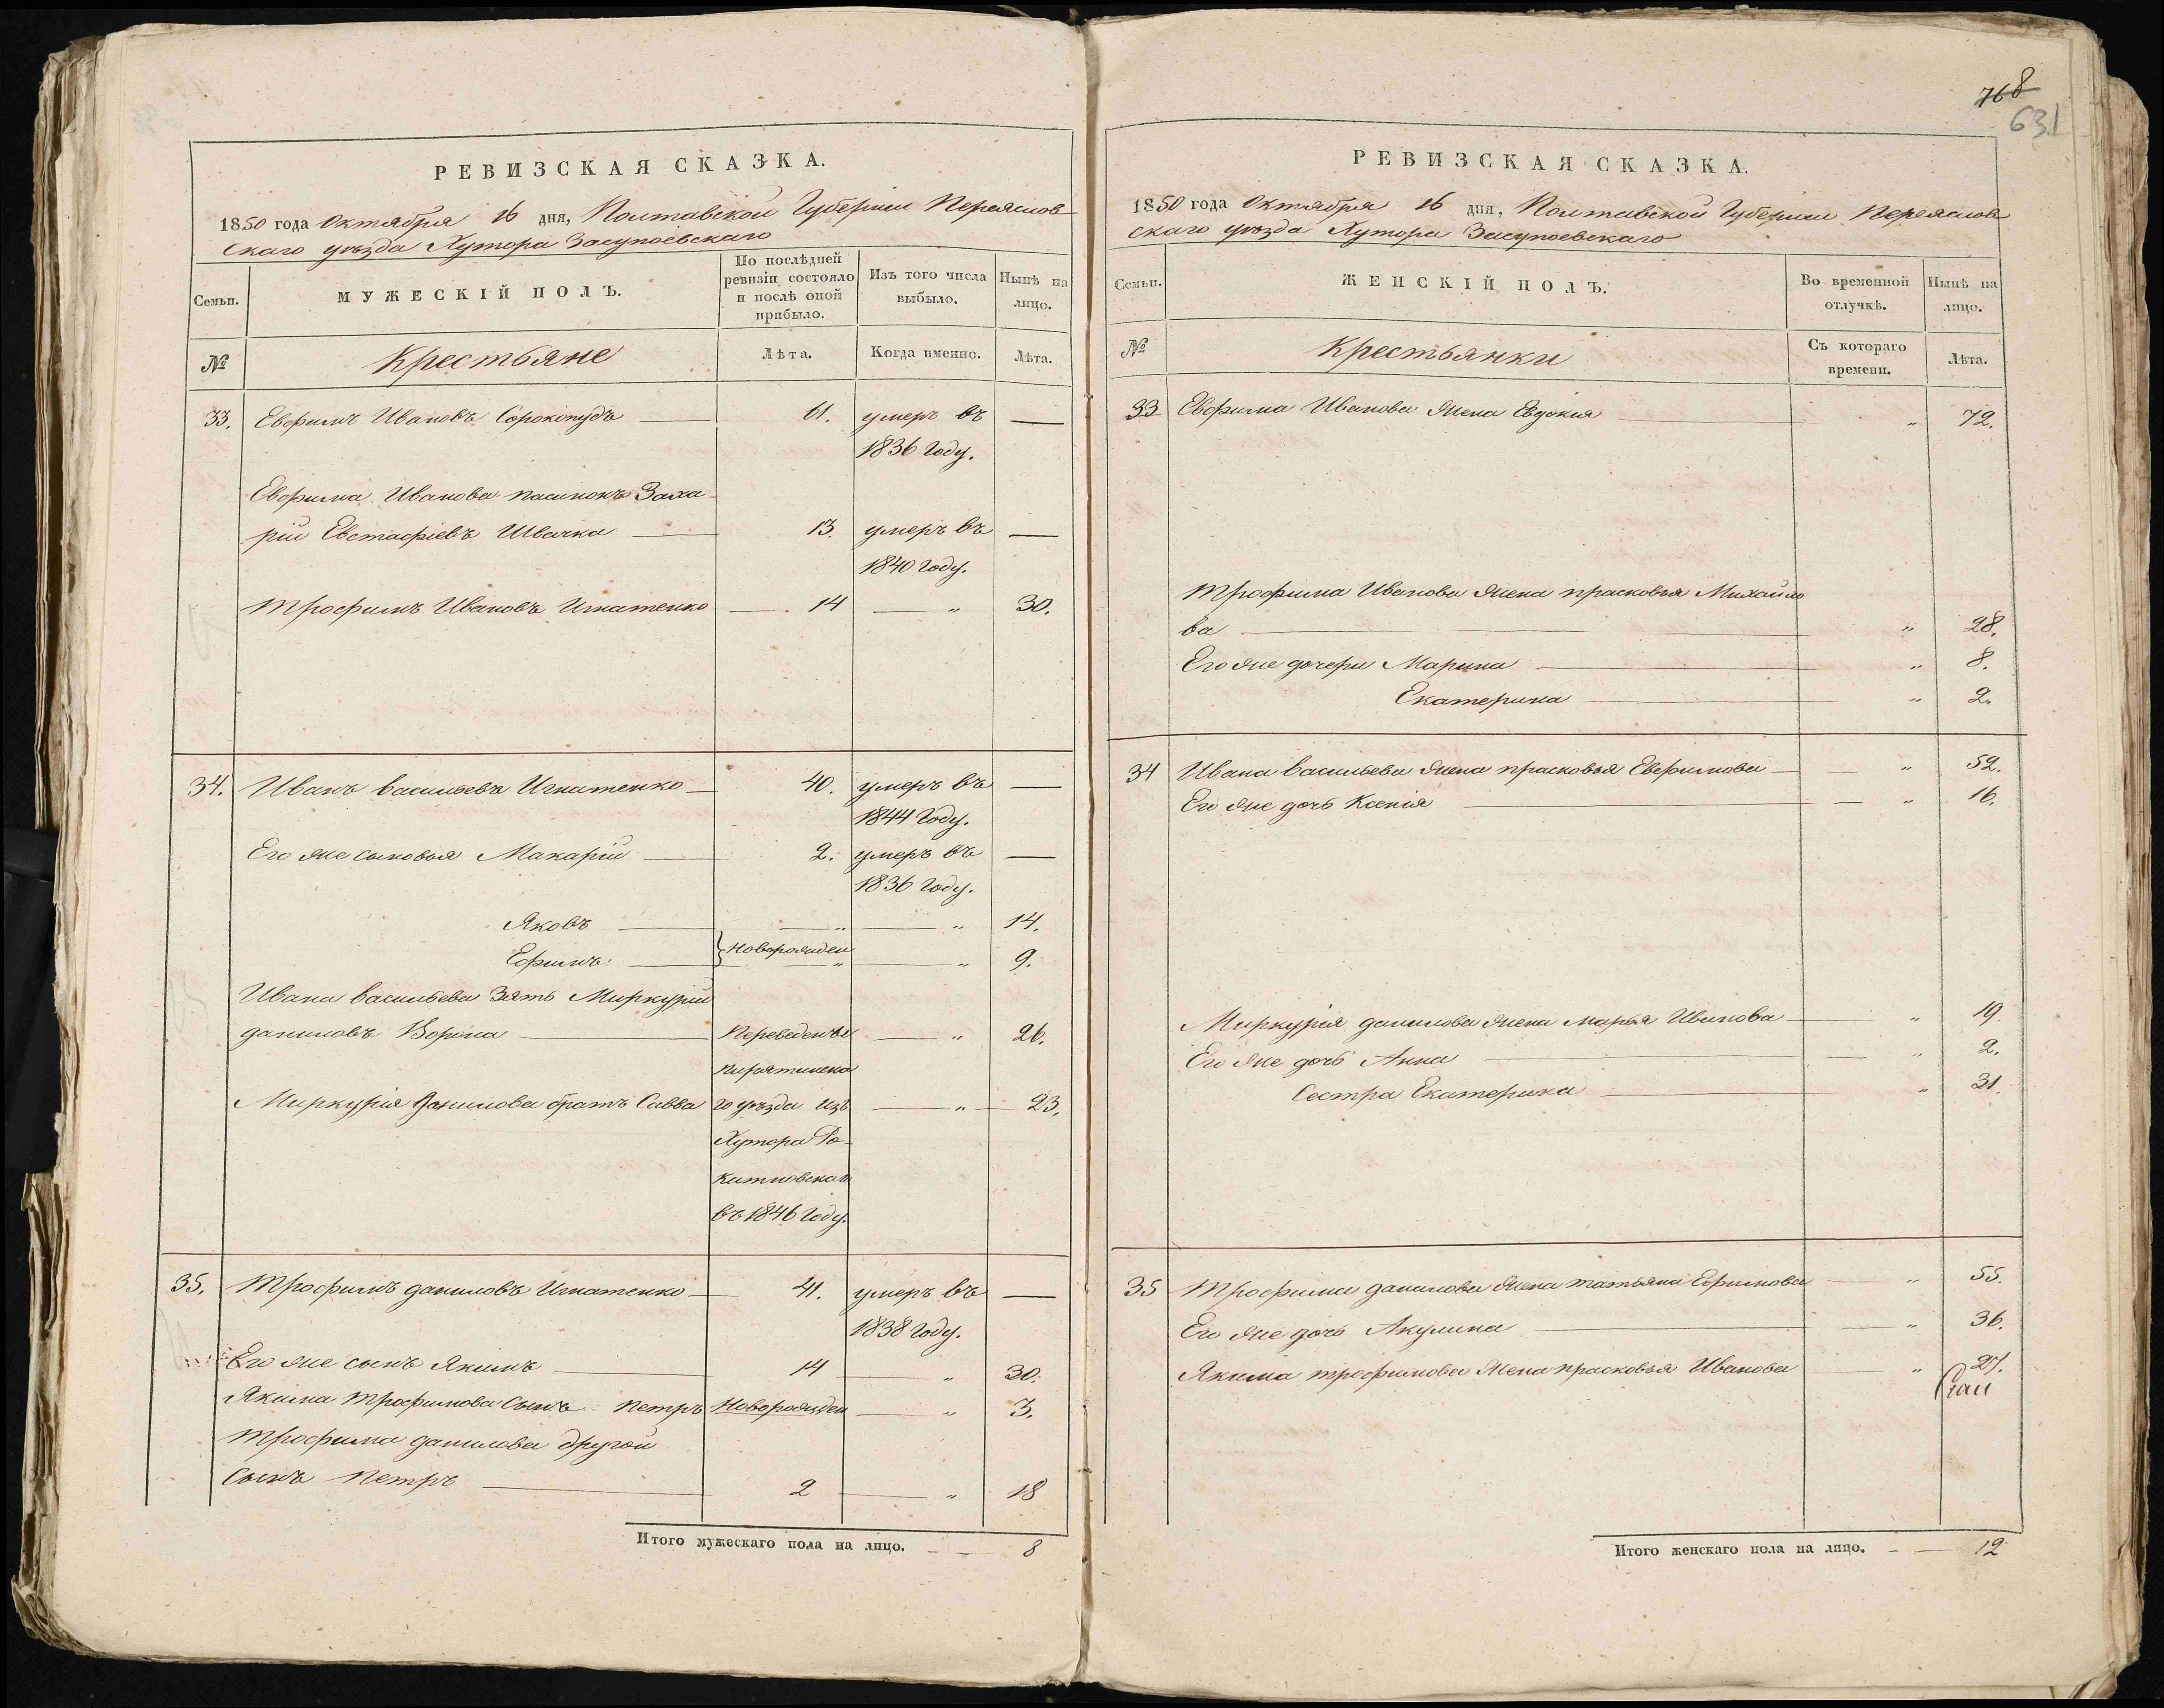 РЕВИЗСКАЯ СКАЗКА.
1850 года Октября 16 дня, Полтавской Губерніи Переяслов
скаго уѣзда Хутора Засупоевскаго
Семьи.
МУЖЕСКІЙ ПОЛЪ.
По послѣдней
ревизіи состояло
и послѣ оной
прибыло.
Изъ того числа
выбыло.
Нынѣ на
лицо.
№
Крестьяне
Лѣта.
Когда именно.
Лѣта.
33. Евфимъ Ивановъ Сорокопудъ 61. умеръ въ —
1836 году.
Евфима Иванова пасинокъ Заха
рій Евстафіевъ Швачка 13. умеръ въ —
1840 году.
Трофимъ Ивановъ Игнатенко 14 — „ 30.
34. Иванъ васильевъ Игнатенко 40. умеръ въ —
1844 году.
Его же сыновья Макарій 2. умеръ въ —
1836 году.
Яковъ — „ — „ 14.
Новорожден
Ефимъ — „ — „ 9.
Ивана васильева Зять Миркурій
даниловъ Ворона Переведены — „ 26.
Пирятинска
Миркурія Данилова братъ Савва го уѣзда изъ — „ 23.
Хутора Ро
китновскаго
въ 1846 году.
35. Трофимъ даниловъ Игнатенко 41. умеръ въ —
1838 году.
Его же сынъ Якимъ 14 — „ 30.
Якима Трофимова Сынъ Петръ Новорожден — „ 3.
Трофима данилова другой
Сынъ Петръ 2 — „ 18
Итого мужескаго пола на лицо. — — 8
768
631
РЕВИЗСКАЯ СКАЗКА.
1850 года Октября 16 дня, Полтавской Губерніи Переяслов
скаго уѣзда Хутора Засупоевскаго
Семьи.
ЖЕНСКІЙ ПОЛЪ.
Во временной
отлучкѣ.
Нынѣ на
лицо.
№
Крестьянки
Съ котораго
времени.
Лѣта.
33 Евфима Иванова жена Евдокия „ 72.
Трофима Иванова жена прасковья Михайло
ва „ 28.
Его же дочери Марина „ 8.
Екатерина „ 2.
34 Ивана васильева жена прасковья Евфимова — „ 52.
Его же дочь Ксенія — „ 16.
Миркурія данилова жена марья Иванова „ 19.
Его же дочь Анна — „ 2.
Сестра Екатерина „ 31.
35 Трофима данилова жена татьяна Ефимова — „ 55.
Его же дочь Акулина „ 36.
Якима трофимова Жена прасковья Иванова „ 27.
Итого женскаго пола на лицо. — — 12